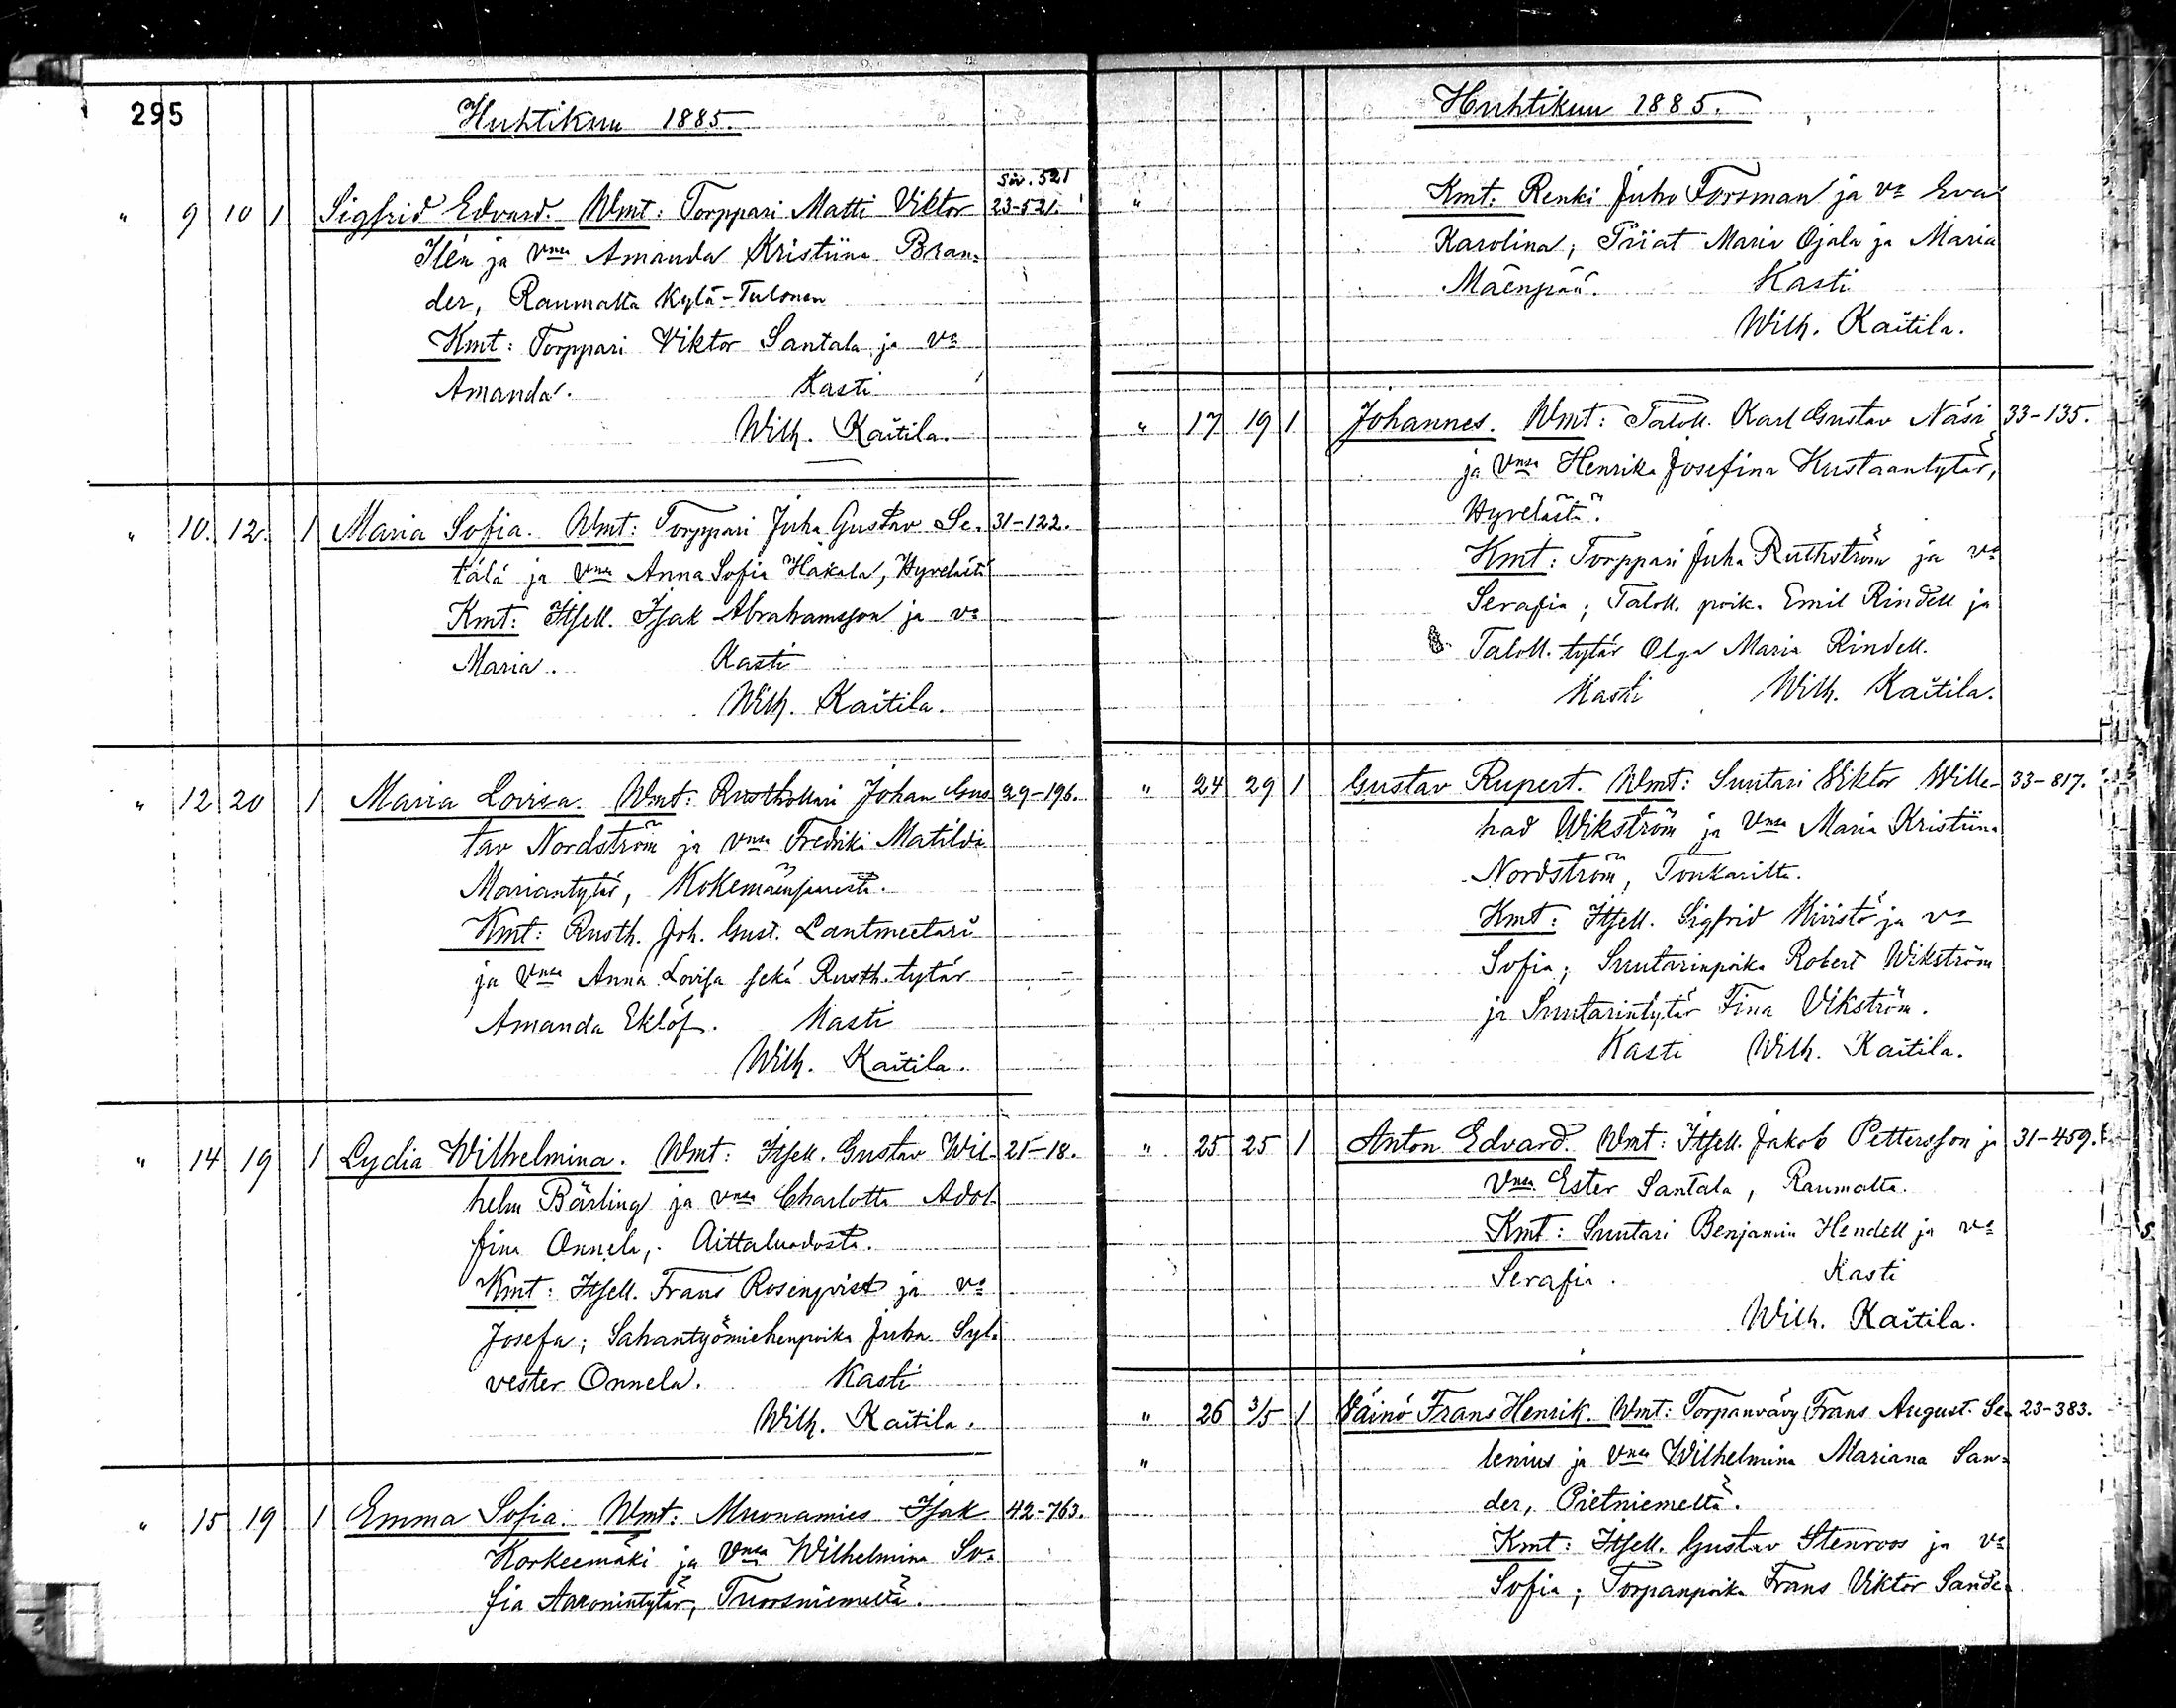 295
Huhtikuu 1885.
Siv. 521
" 9 10 1 Sigfrid Edvard. Wmt: Torppari Matti Viktor 23-521.
Ilén ja vnsa Amanda Kristiina Bran=
der, Raumalta Kylä-Tulonen
Kmt: Torppari Viktor Santala ja va
Amanda. Kasti
Wilh. Kaitila.
" 10. 12. 1 Maria Sofia. Wmt: Torppari Juha Gustav Se= 31-122.
tälä ja vnsa Anna Sofia Hakala, Hyvelästä
Kmt: Itsell. Isak Abrahamsson ja va
Maria. Kasti
Wilh. Kaitila.
" 12 20 1 Maria Lovisa. Wmt: Rusthollari Johan Gus 29-196.
tav Nordström ja vnsa Fredrika Matilda
Mariantytär, Kokemäensuusta.
Kmt: Rusth. Joh. Gust. Lantmeetari
ja vnsa Anna Lovisa sekä Rusth. tytär
Amanda Eklöf. Kasti
Wilh. Kaitila.
" 14 19 1 Lydia Wilhelmina. Wmt: Itsell. Gustav Wil- 25-18.
helm Bärling ja vnsa Charlotta Adol-
fina Onnela, Aittaluodosta.
Kmt: Itsell. Frans Rosenqvist ja va
Josefa; Sahantyömiehenpoika Juha Syl-
vester Onnela. Kasti
Wilh. Kaitila.
" 15 19 1 Emma Sofia. Wmt: Muonamies Isak 42-763.
Korkeemäki ja vnsa Wilhelmina So=
fia Aaronintytär, Tuorsniemeltä.
Huhtikuu 1885.
" Kmt: Renki Juho Forsman ja va Eva
Karolina; Piiat Maria Ojala ja Maria
Mäenpää. Kasti
Wilh. Kaitila.
" 17 19 1 Johannes. Wmt: Taloll. Karl Gustav Näsi 33-135.
ja vnsa Henrika Josefina Kustaantytär,
Hyvelästä.
Kmt: Torppari Juha Ruthström ja va
Serafia; Taloll. poika Emil Rindell ja
Taloll. tytär Olga Maria Rindell.
Kasti Wilh. Kaitila.
" 24 29 1 Gustav Rupert. Wmt: Suutari Viktor Wille- 33-817.
had Wikström ja vnsa Maria Kristiina
Nordström, Toukarilta.
Kmt: Itsell. Sigfrid Kiiristö ja va
Sofia; Suutarinpoika Robert Wikström
ja Suutarintytär Fina Vikström.
Kasti Wilh. Kaitila.
" 25 25 1 Anton Edvard. Wmt: Itsell. Jakob Pettersson ja 31-459.
vnsa Ester Santala, Raumalta.
Kmt: Suutari Benjamin Hendell ja va
Serafia. Kasti
Wilh. Kaitila.
" 26 3/5 1 Väinö Frans Henrik. Wmt: Torpanvävy Frans August Se= 23-383.
" lenius ja vnsa Wilhelmina Mariana San=
der, Pietniemeltä.
Kmt: Itsell. Gustav Stenroos ja va
Sofia; Torpanpoika Frans Viktor Sande